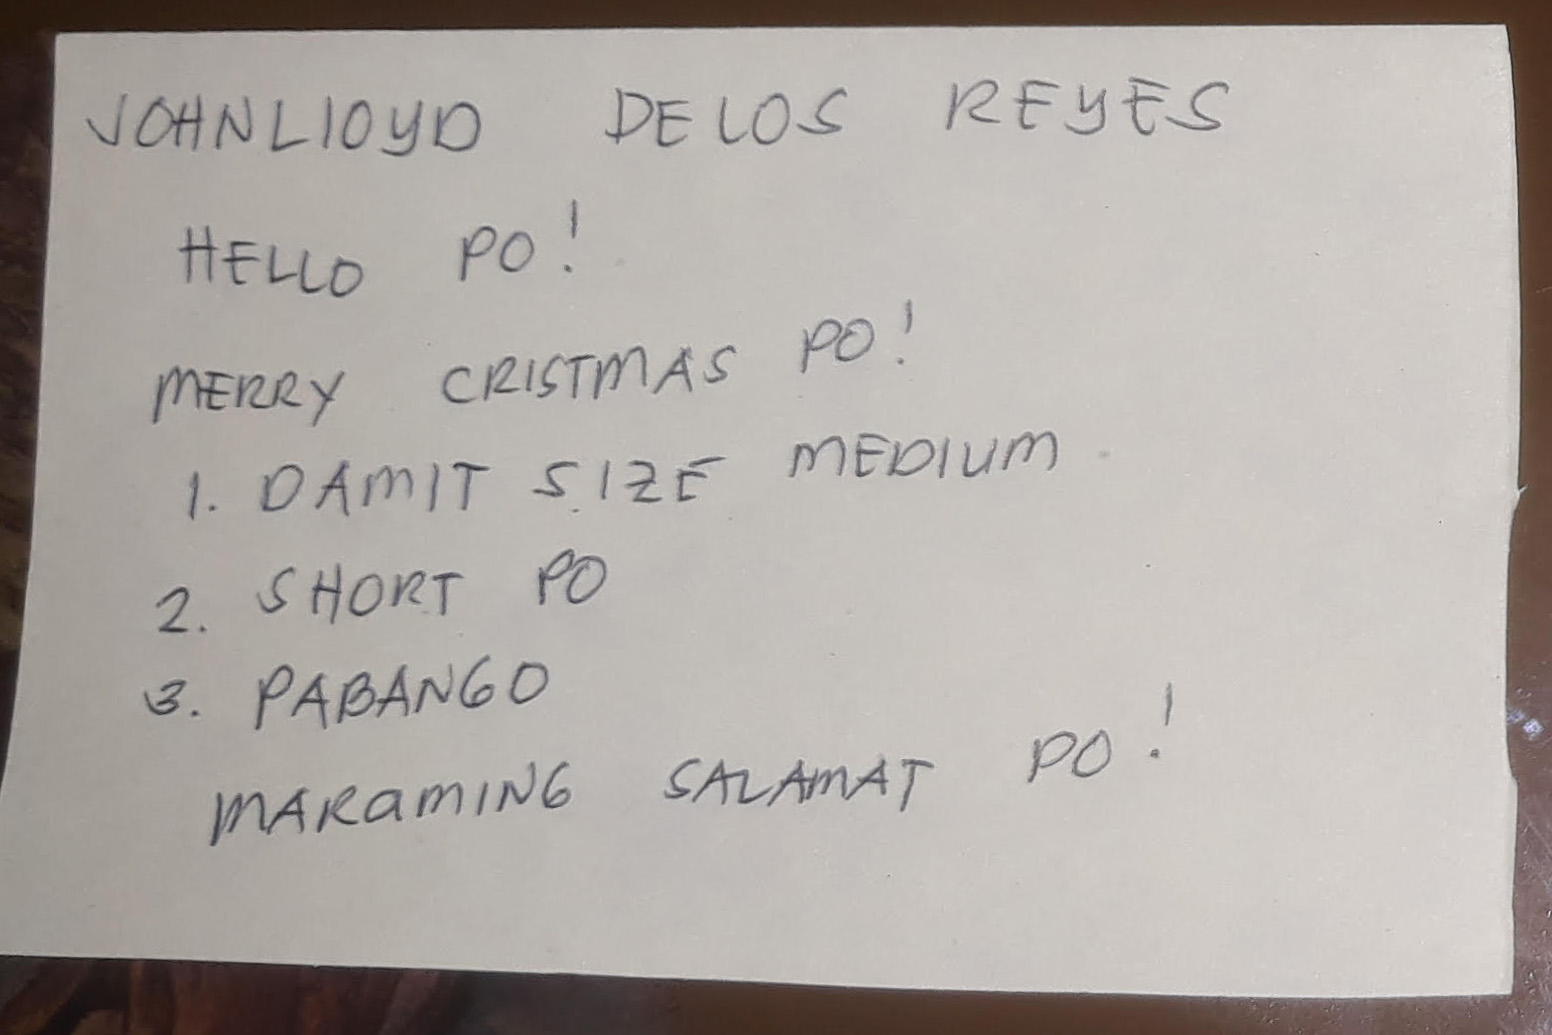 JOHNLLOYD DELOS REYES
HELLO PO!
MERRY CRISTMAS PO!
1. DAMIT SIZE MEDIUM
2. SHORT PO
3. PABANGO
MARAMING SALAMAT PO!